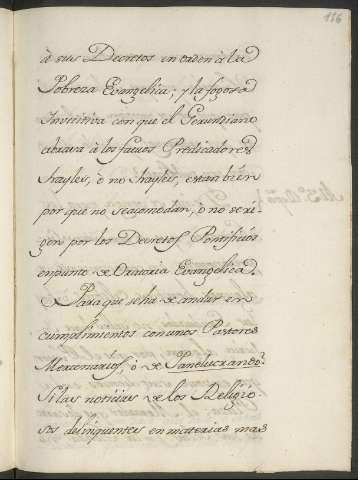 116
à sus Decretos en orden à la
Pobreza Evangelica; y la fogosa
Invectiva con que el Gerundiano
abrasa à los fatuos Predicadores
frayles, ò no frayles, estan bien
por que no se acomodan, ò no se ri-
gen por los Decretos Pontificios
en punto de Oratoria Evangelica.
Para que se ha de andar en
cumplimientos con unos Pastores
Mercenarios, ò de Pane lucrando?
Si las noticias de los Religio-
sos delinquentes en materias mas